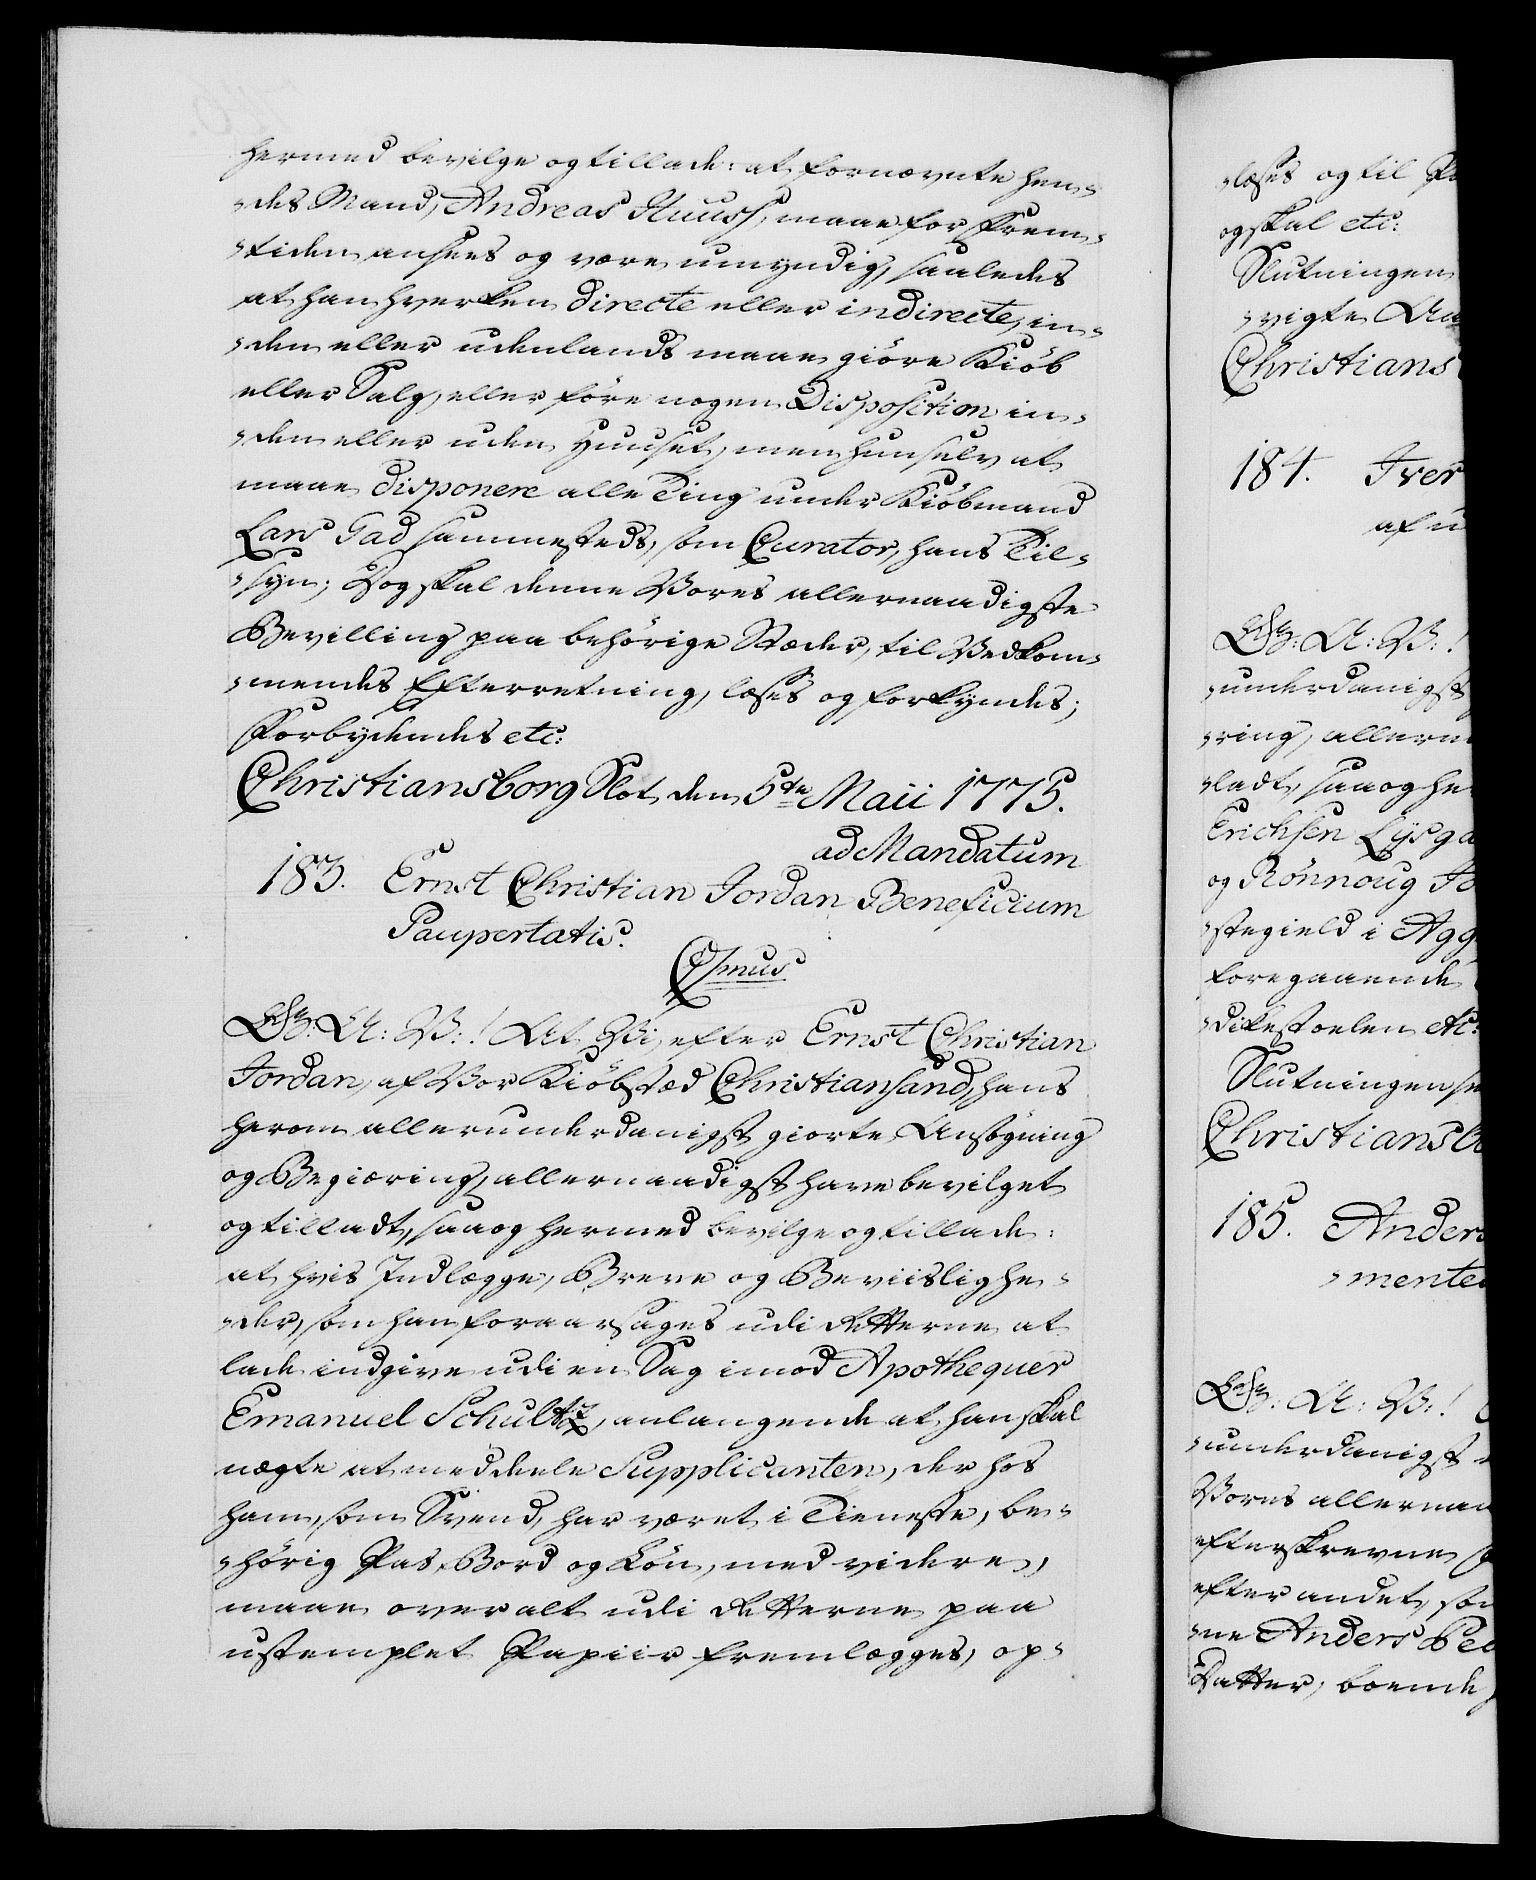 hermed bevilge og tillade: at fornævnte hen-
-des Mand, Andreas Huuss, maae for Frem-
-tiden ansees og være umyndig, saaledes
at han hverken directe eller indirecte, in-
-den eller udenlands maae giøre Kiøb
eller Salg, eller føre nogen Disposition in-
-den eller uden Huuset, men hun selv at
maae disponere alle Ting under Kiøbmand
Lars Gad sammesteds, som Curator, hans Til-
-syn; Dog skal denne Vores allernaadigste
Bevilling paa behørige Stæder, til Vedkom-
-mendes Efterretning, læses og forkyndes;
Forbydendes etc:
Christiansborg Slot den 5te Maii 1775.
ad Mandatum
183. Ernst Christian Jordan Beneficium
Paupertatis.
Gsmus
LSB: A: V:! At Vi, efter Ernst Christian
Jordan, af Vor Kiøbstæd Christiansand, hans
herom allerunderdanigst giorte Ansøgning
og Begiæring, allernaadigst have bevilget
og tilladt, saa og hermed bevilge og tillade:
at hvis Indlægge, Breve og Beviislighe-
-der, som han foraarsages udi Retterne at
lade indgive udi en Sag imod Apothequer
Emanuel Schultz, anlangende at han skal
nægte at meddeele Supplicanten, der hos
ham, som Svend, har været i Tieneste, be-
-hørig Pas, Bord og Løn, med videre,
maae overalt udi Retterne paa
ustemplet Papiir fremlægges, op-
-læses og til
og skal etc:
Slutningen
-vigte
Christians
184. Iver
af
LSB: A: V:!
-underdanigst
-ring, allern
-ladt, saa og he
Erichsen Lysga
og Rønnoug Jo
-stegield i Agg
foregaaende
-dikestoelen etc:
Slutningen
Christiansb
185. Anders
-mente
LSB: A: V:!
-underdanigst
Vores allernaa
efterskrevne
efter andet, som
-ne Anders Ped
Datter, boende